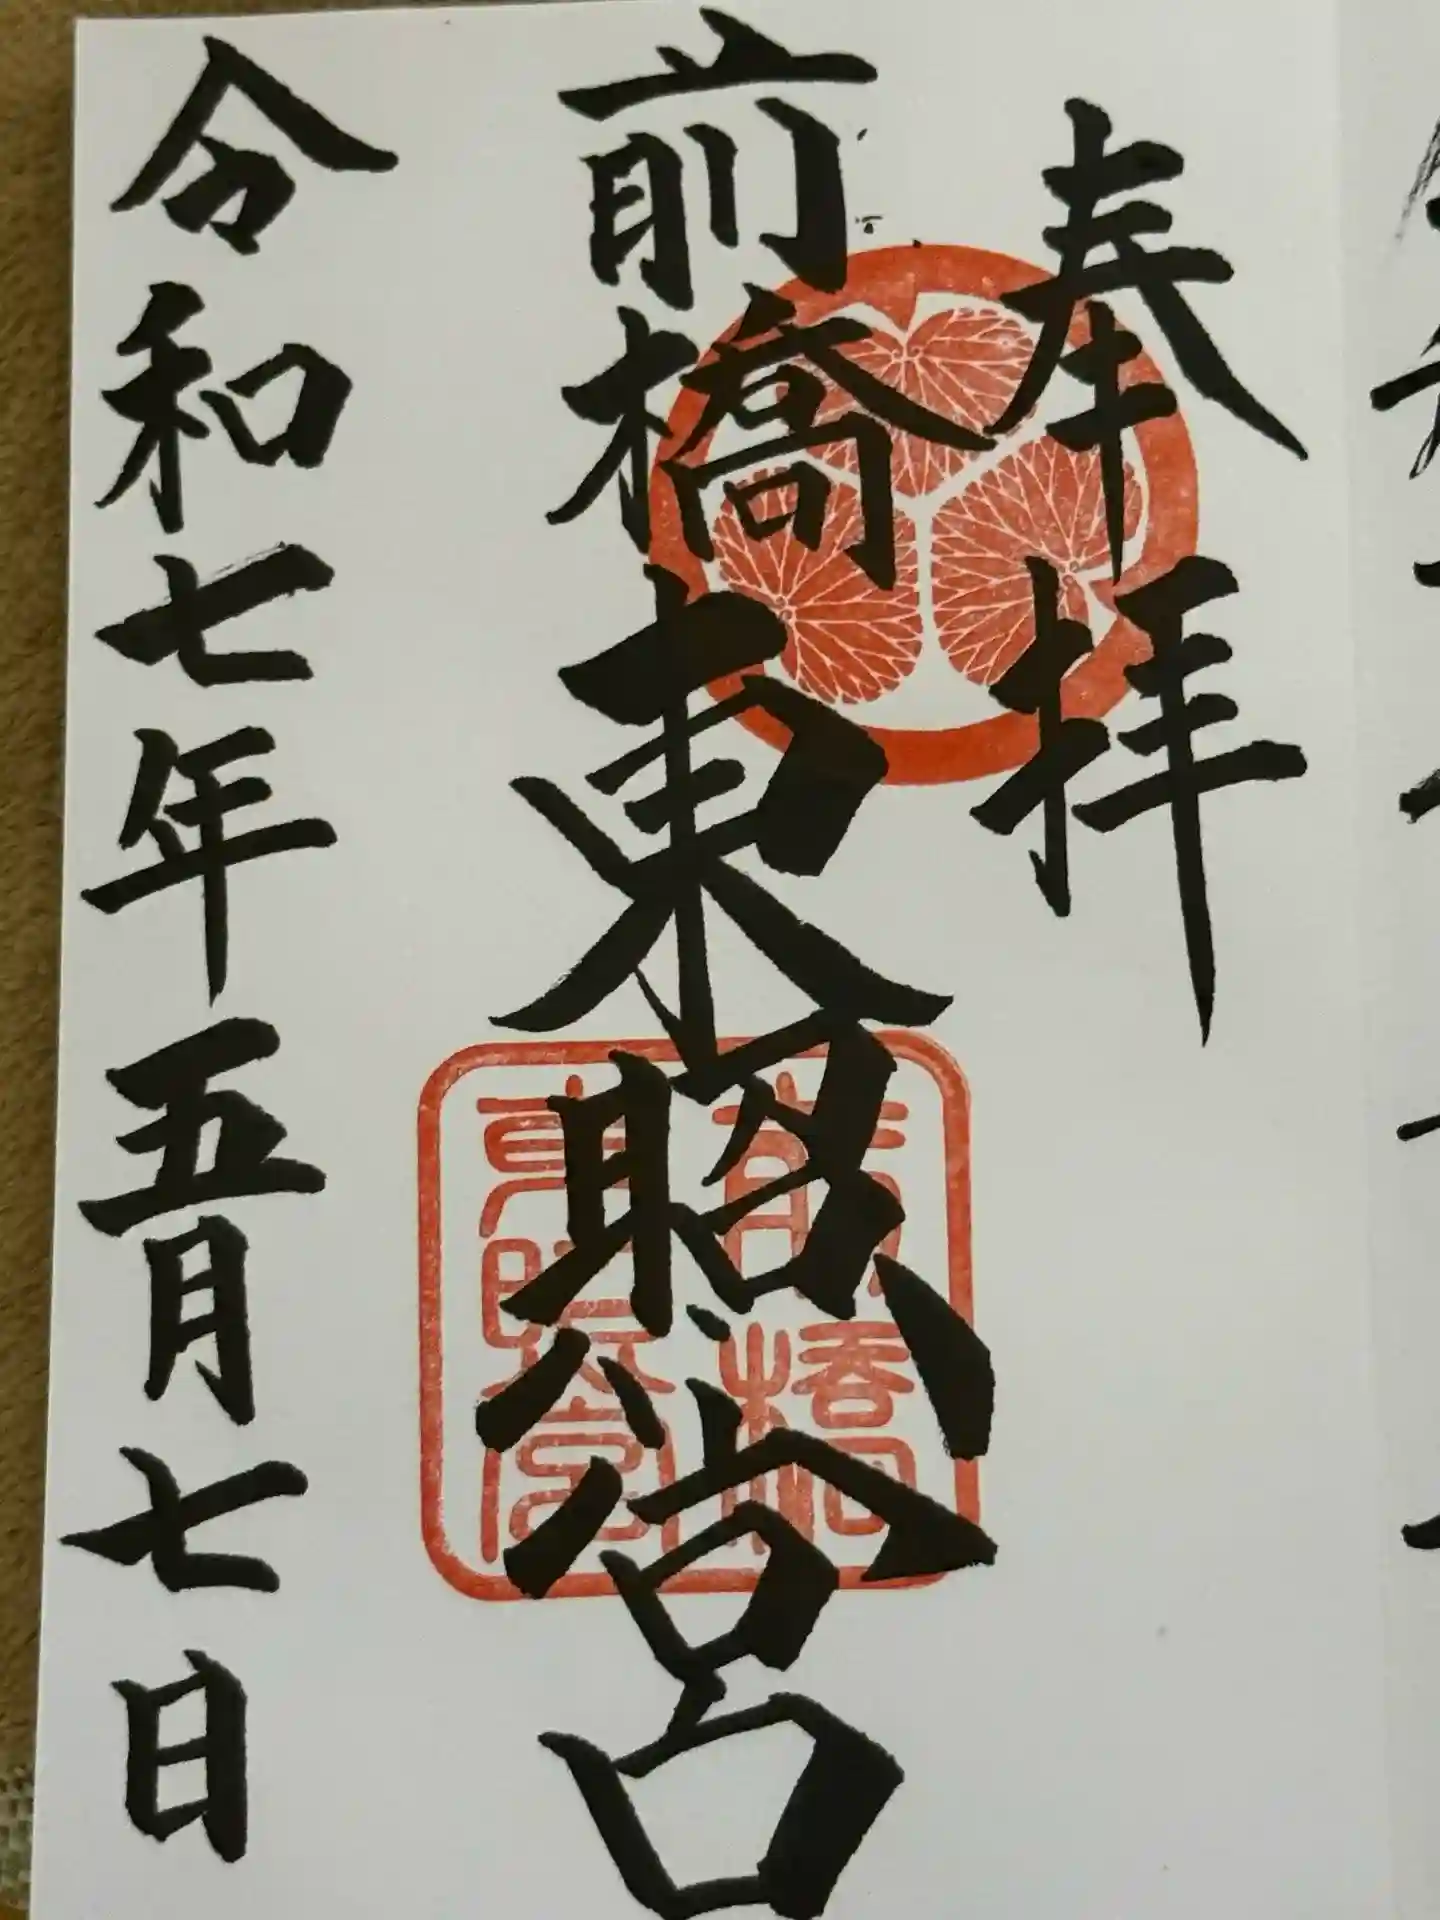 奉拝
前橋東照宮
前橋
東照宮
令和七年五月七日